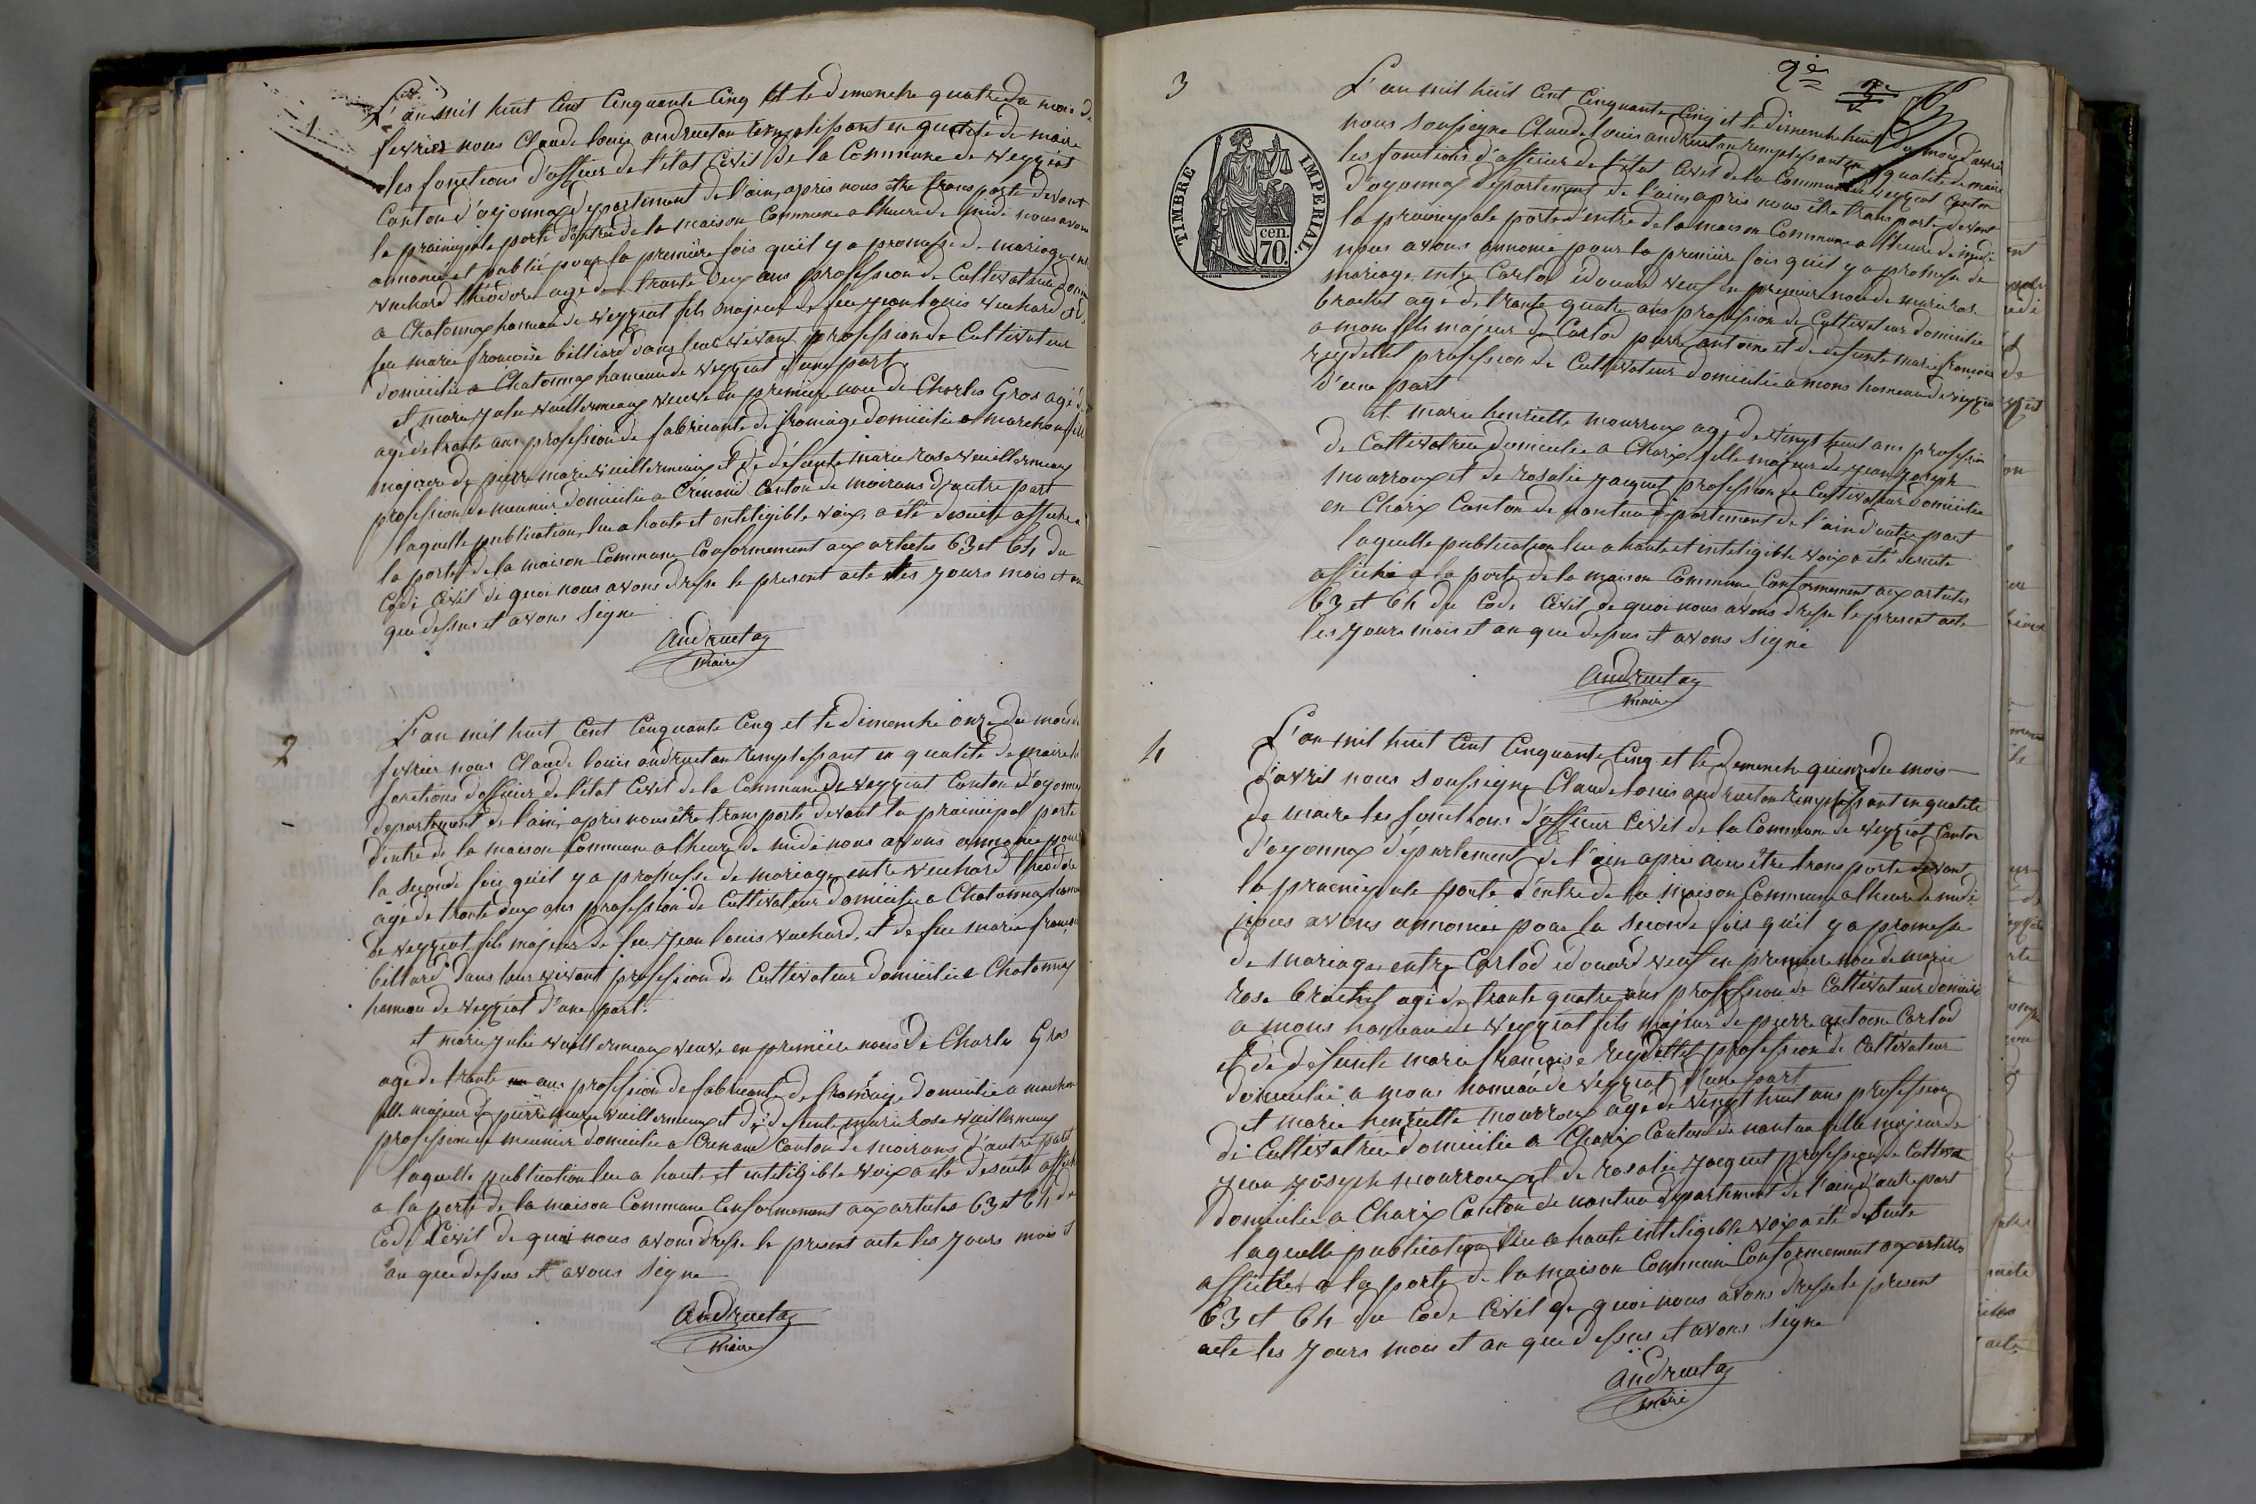 1
L'an mil huit Cent Cinquante Cinq et le dimenche quatre du mois de
fevrier nous Claude louis andruetan remplissant en qualité de maire
les fonctions d'officier de l'état Civil de la Commune de veyziat
Canton d'oyonnax departement de l'ain, apris nous être transporté devant
la prainsipale porte d'entrée de la maison Commune a lheure de midi nous avons
annoncé et publié pour la premiere fois qu'il y a promesse de mariage entre
vuchard théodore agé de trante deux ans profession de Cultivateur
a Chatonnax hameau de veyziat fils majeur de feu jean louis vuchard et de
feu marie francoise billiard dans leur vivant profession de Cultivateur
domiciliée a Chatonnax hameau de veyziat d'une part
et marie julie vuillermeaux veuve en premiere noce de Charles Gros agé de
agé de trante ans profession de fabricante de fromage domiciliée a marchon fille
majeure de pierre marie vuillermeaux et de défeunte marie rose vuillermeaux
profession de meunier domiciliée a Crenand Canton de moirans d'autre part
laquelle publication, lue a haute et inteligible voix, a été desuite affiche a
la porte de la maison Commune Conformement aux articles 63 et 64 du
Code Civil de quoi nous avons dressé le present acte les jours mois et an
que dessus et avons signé
Andruetan
maire
2
L'an mil huit Cent Cinquante Cinq et le dimenche onze du mois de
fevrier nous Claude louis andruetan remplissant en qualité de maire les
fonctions d'officier de l'état Civil de la Commune de veyziat Canton d'oyonnax
departement de l'ain, apris nous être transporté devant la prainsipal porte
d'entre de la maison Commune a lheure de midi nous avons annoncé pour
la seconde fois qu'il y a promesse de mariage entre vuchard théodore
agé de trante deux ans profession de Cultivateur domicilie a Chatonnax hameau
de veyziat fils majeur de feu jean louis vuchard, et de feu marie françoise
billard dans leur vivant profession de Cultivateur domiciliée a Chatonnax
hameau de veyziat d'une part.
et marie julie vuillermeaux veuve en premiere noces de Charles Gros
age de trante ans profession de fabricante de fromage domiciliée a marchon
fille majeur de pierre marie vuillermeaux et de défeunte marie rose vuillermeaux
profession de meunier domiciliée a Crenand Canton de moirans d'autre part
laquelle publication lue a haute et inteligible voix a été desuite affiche
a la porte de la maison Commune Conformement aux articles 63 et 64 du
Code Civil de quoi nous avons dressé le present acte les jours mois et
an que dessus et avons signé
Andruetan
maire
2e
3
TIMBRE IMPERIAL.
70 cen.
L'an mil huit Cent Cinquante Cinq et le dimenche huit du mois d'avril
nous soussigné Claude louis andruetan remplissant en qualité de maire
les fonctions d'officier de l'état Civil de la Commune de veyziat Canton
d'oyonnax departement de l'ain, apris nous être transporté devant
la prainsipale porte d'entré de la maison Commune a lheure de midi
nous avons annoncé pour la premiere fois qu'il y a promesse de
mariage entre Carlod édouard veuf en premiere noce de marie rose
brachet agé de trante quatre ans profession de Cultivateur domicilie
a mons fils majeur de Carlod pierre antoine et de defunte marie françoise
reydellet profession de Cultivateur domiciliée a mons hameau de veyziat
d'une part
et marie henriette mourroux age de vingt huit ans profession
de Cultivatrice domiciliée a Charix fille majeure de jean joseph
mourroux et de rosalie jacquet profession de Cultivateur domiciliée
en Charix Canton de nantua departement de l'ain d'autre part
laquelle publication lue a haute et inteligible voix a été desuite
affiché a la porte de la maison Commune, Conformement aux articles
63 et 64 du Code Civil de quoi nous avons dressé le present acte
les jours mois et an que dessus et avons signé
Andruetan
maire
4
L'an mil huit Cent Cinquante Cinq et le dimenche quinze du mois
d'avril nous soussigné Claude louis andruetan remplissant en qualité
de maire les fonctions d'officier Civil de la Commune de veyziat Canton
d'oyonnax département de l'ain apris nous être transporté devant
la prainsipale porte d'entré de la maison Commune a lheure de midi
nous avons annoncé pour la seconde fois qu'il y a promesse
de mariage entre Carlod édouard veuf en premiere noce de marie
rose brachet agé de trante quatre ans profession de Cultivateur domicilié
a mons hameau de veyziat fils majeur de pierre antoine Carlod
et de défunte marie françoise reydellet profession de Cultivateur
domiciliée a mons hameau de veyziat d'une part
et marie henriette mourroux agé de vingt huit ans profession
de Cultivatrice domiciliée a Charix Canton de nantua fille majeur de
jean joseph mourroux et de rosalie jacquet profession de Cultivat
domiciliée a Charix Canton de nantua departement de l'ain d'autre part
laquelle publication lue a haute inteligible voix a été desuite
affiche a la porte de la maison Commune Conformement aux articles
63 et 64 du Code Civil de quoi nous avons dressé le present
acte les jours mois et an que dessus et avons signé
Andruetan
maire